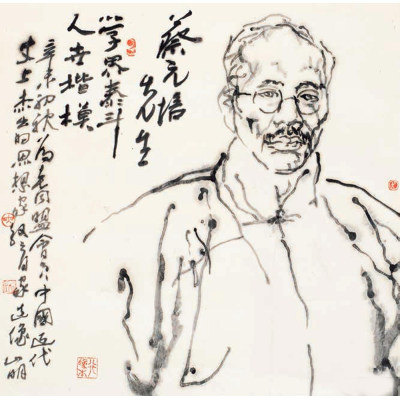 蔡元培
先生
學界泰斗
人世楷模
辛未初秋为老同盟會員中國近代
史上杰出的思想家教育家造像 山明